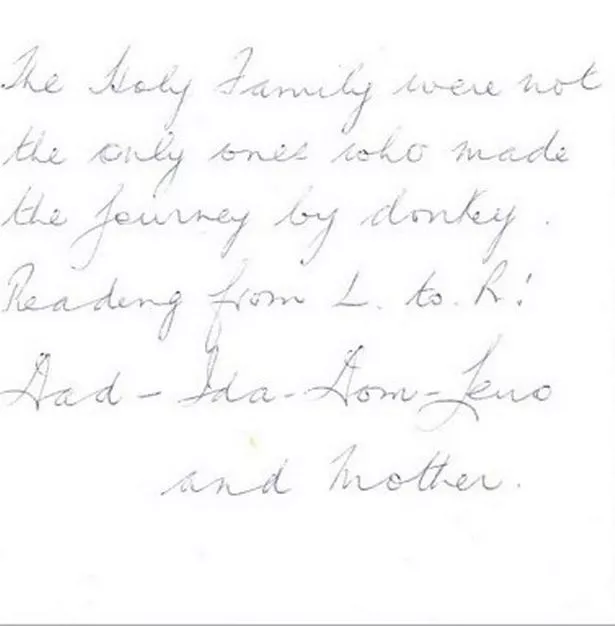 The Holy Family were not
the only ones who made
the journey by donkey.
Reading from L. to. R:
Dad - Ida - Dom - Jeno
and Mother.